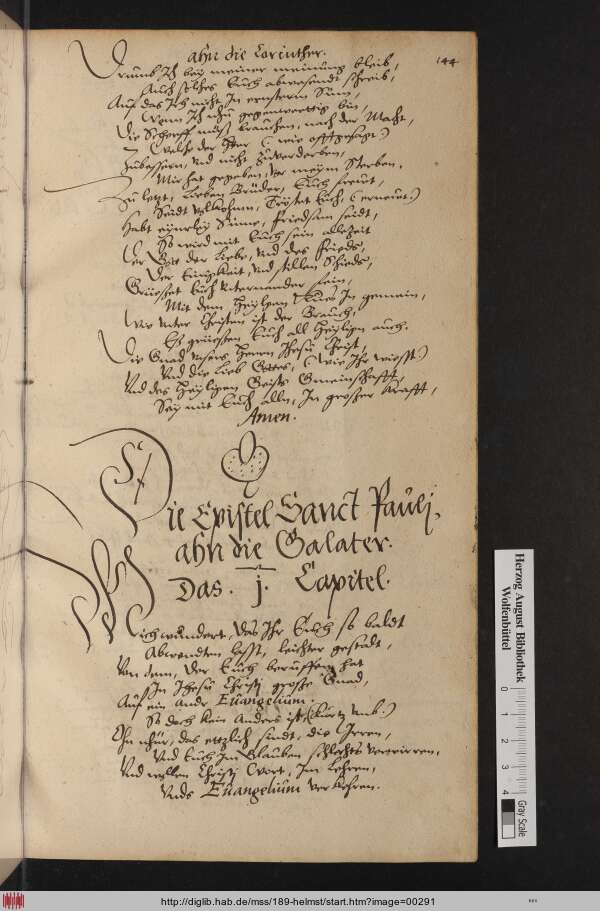 ahn die Corinther.
144
Drumb Ich bey meiner meinung bleib,
Auch solches Euch abwesendt schreib,
Auf das Ich nicht In ernstem Sinn,
Wenn Ich nhu gegenwerttig bin,
Die Scherpff muß brauchen, nach der Macht,
Welche der Herr (wie offtgesagt)
Zubessern, Vnd nicht Zuverderben,
Mir hat gegeben, Vor meym Sterben.
Zu letzt, Lieben Brüder, Euch frewet,
Seidt volkohmen, Tröstet Euch, (ernewet)
Habt einerley Sinne, friedsam seidt,
So wird mit Euch sein allezeit
Der Gott der Liebe, Vnd des Frieds,
Der Einigkeit, Vnd stillen Schieds,
Grüesset Euch Vnternander fein,
Mit dem Heylgen Kues In gemein,
Wie Vnter Christen ist der Brauch,
Es grüessen Euch all Heyligen auch.
Die Gnad Vnsers Herrn Jhesu Christ,
Vnd die Lieb Gottes, (Wie Ihr wisst)
Vnd des Heyligen Geists Gmeinschafft,
Sey mit Euch allen, In grosser Krafft,
Amen.
Die Epistel Sanct Pauli,
ahn die Galater.
Das . j. Capitel.
Mich wundert, das Ihr Euch so baldt
Abwendten lasst, leichter gestalt,
Von dem, der Euch beruffen hat
In Jhesu Christi grosse Gnad,
Auf ein andr Euangelium.
So doch kein Anders ist, (kurtz vmb)
Ohn nhur, das ettzlich sindt, die Irren,
Vnd Euch Im Glauben schlechts verwirren,
Vnd wollen Christi Wort, Im Lehren,
Vnds Euangelium verkehren.
Herzog August Bibliothek
Wolfenbüttel
0 1 2 3 4
Gray Scale
http://diglib.hab.de/mss/189-helmst/start.htm?image=00291